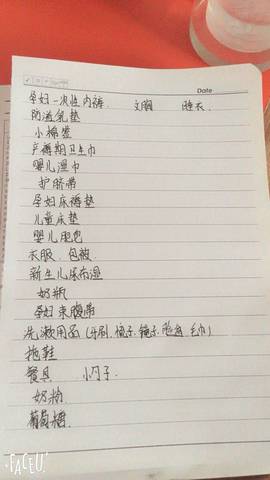 Date
孕妇一次性内裤. 文胸 睡衣.
防溢乳垫
小棉签
产褥期卫生巾
婴儿湿巾
护脐带
孕妇床褥垫
儿童床垫
婴儿肥皂
衣服. 包被.
新生儿尿布湿
奶瓶
孕妇束腹带
洗漱用品(牙刷. 梳子. 镜子. 脸盆. 毛巾)
拖鞋
餐具 小勺子.
奶粉
葡萄糖.
FACEU